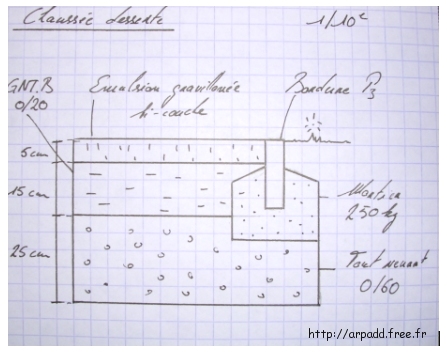 Chaussée desserte
1/10e
GNT.B
0/20
Emulsion gravillonnée
bi-couche
Bordure P3
5cm
15cm
25cm
Mortier
250kg
Tout venant
0/60
http://arpadd.free.fr